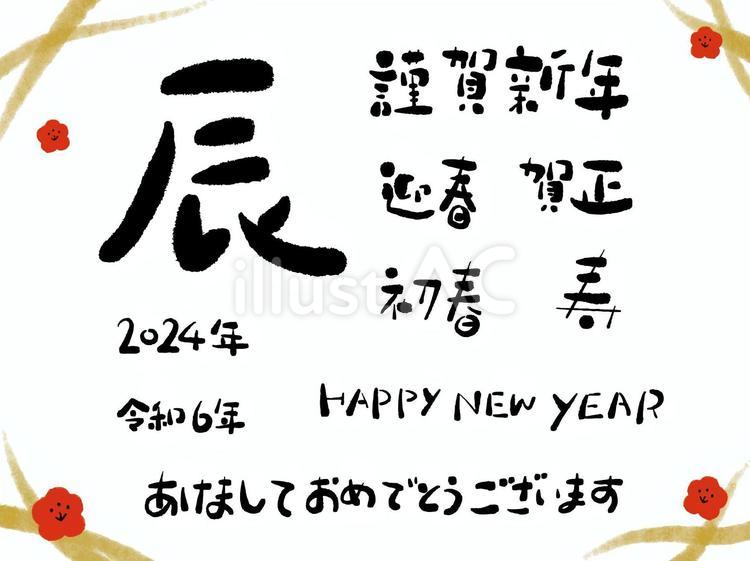 辰
謹賀新年
迎春 賀正
初春 寿
2024年
令和6年
HAPPY NEW YEAR
あけましておめでとうございます
illustAC